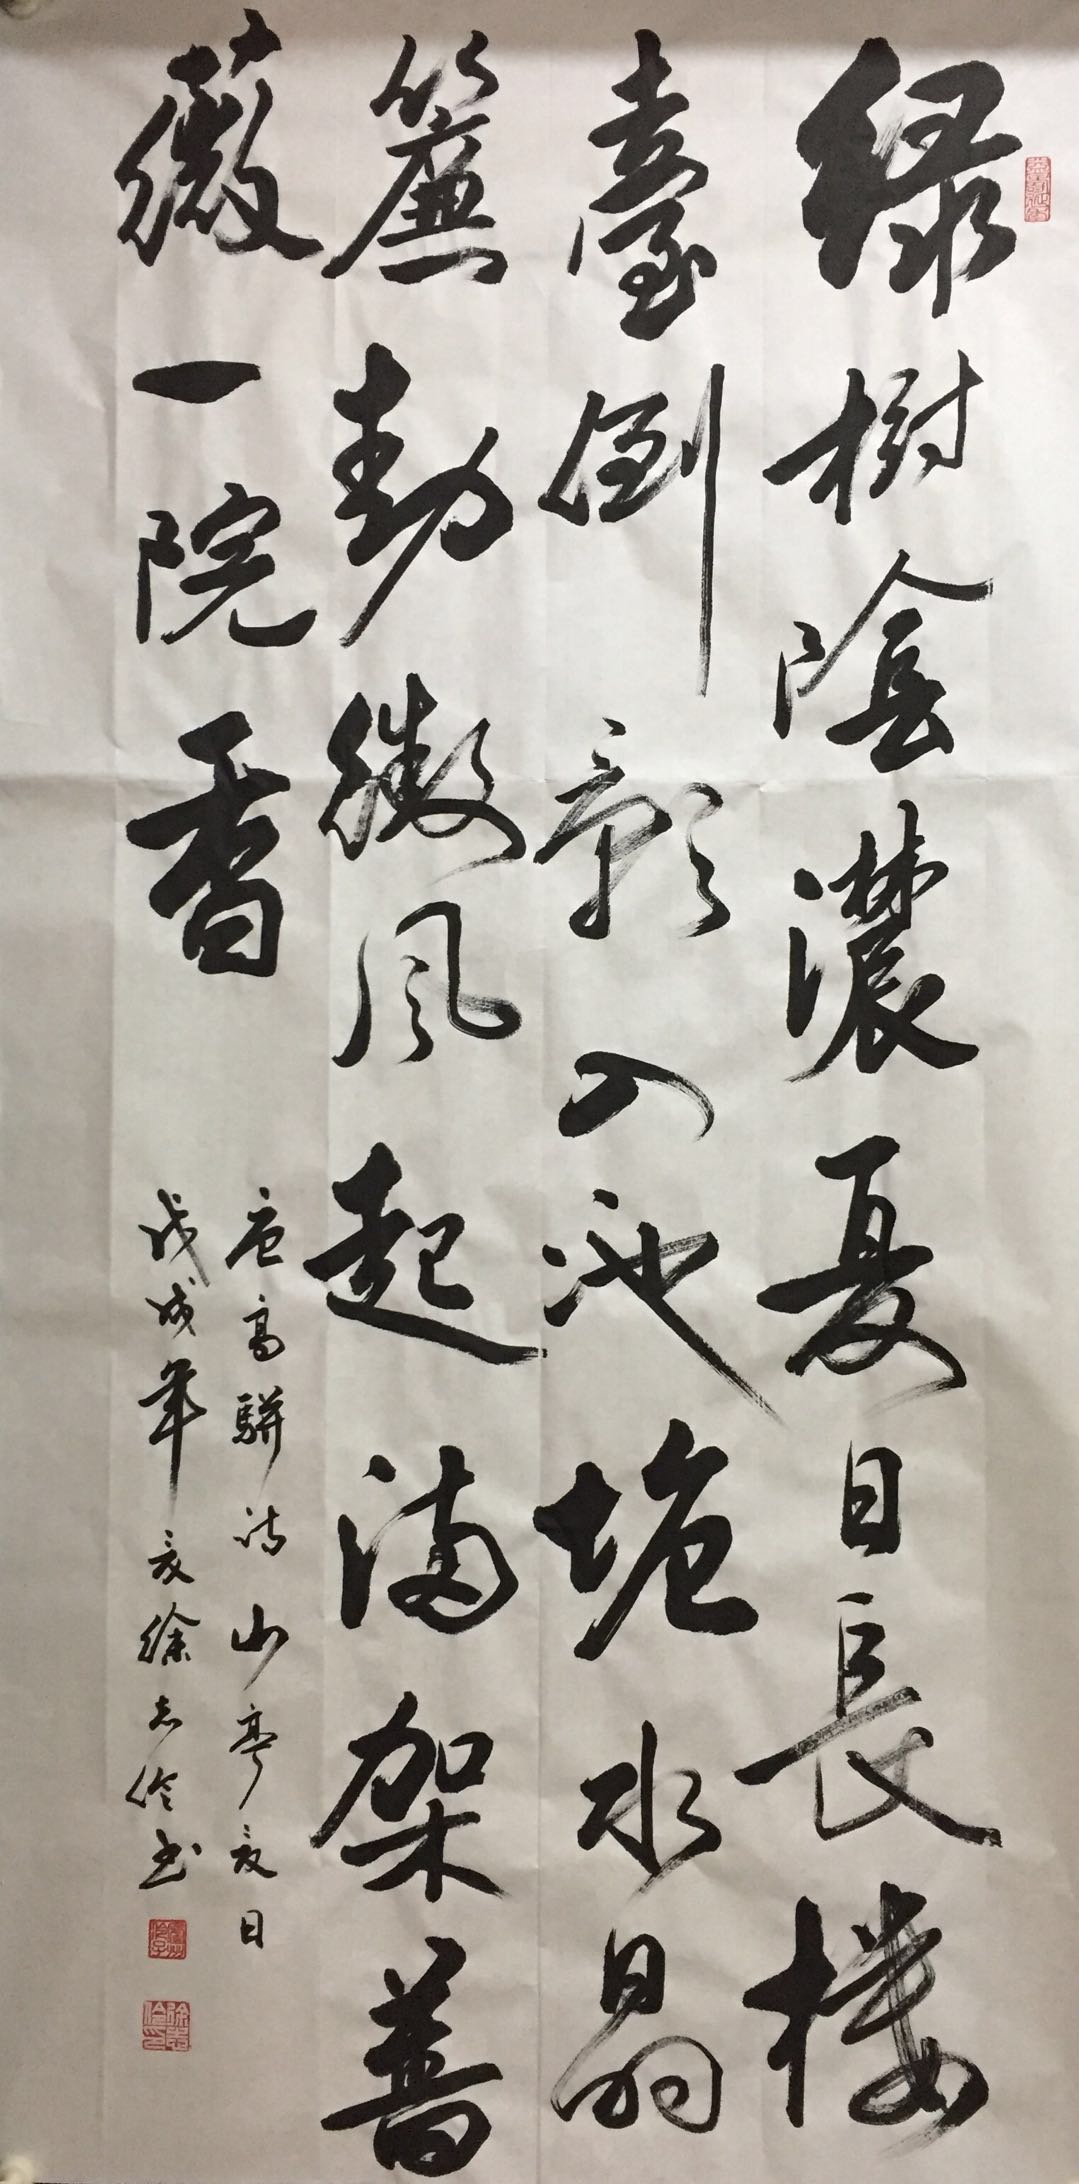 绿樹陰濃夏日長樓
臺倒影入池塘水晶
簾動微風起滿架薔
薇一院香
唐高駢詩山亭夏日
戊戌年夏徐志伶书